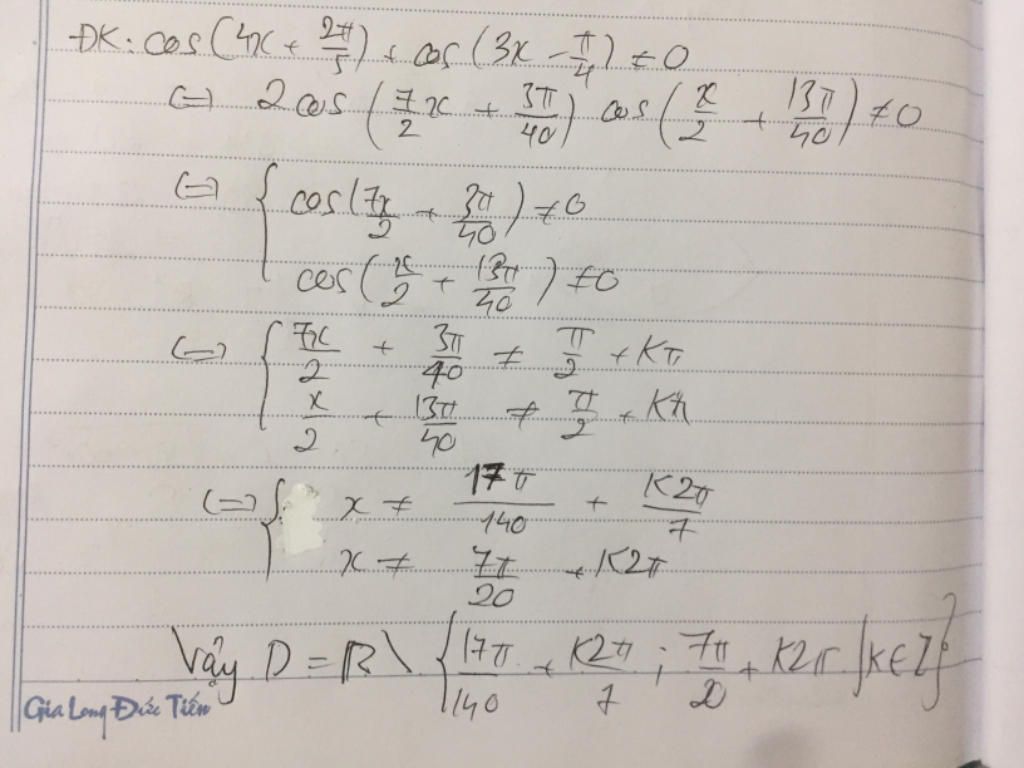 ĐK: cos(4x + 2π/5) + cos(3x - π/4) ≠ 0
(=) 2cos(7/2 x + 3π/40) cos(x/2 + 13π/40) ≠ 0
(=) { cos(7x/2 + 3π/40) ≠ 0
cos(x/2 + 13π/40) ≠ 0
(=) { 7x/2 + 3π/40 ≠ π/2 + Kπ
x/2 + 13π/40 ≠ π/2 + Kπ
(=) { x ≠ 17π/140 + K2π/7
x ≠ 7π/20 + K2π
Vậy D = R \ { 17π/140 + K2π/7 ; 7π/20 + K2π | K ∈ Z }
Gia Long Đức Tiến